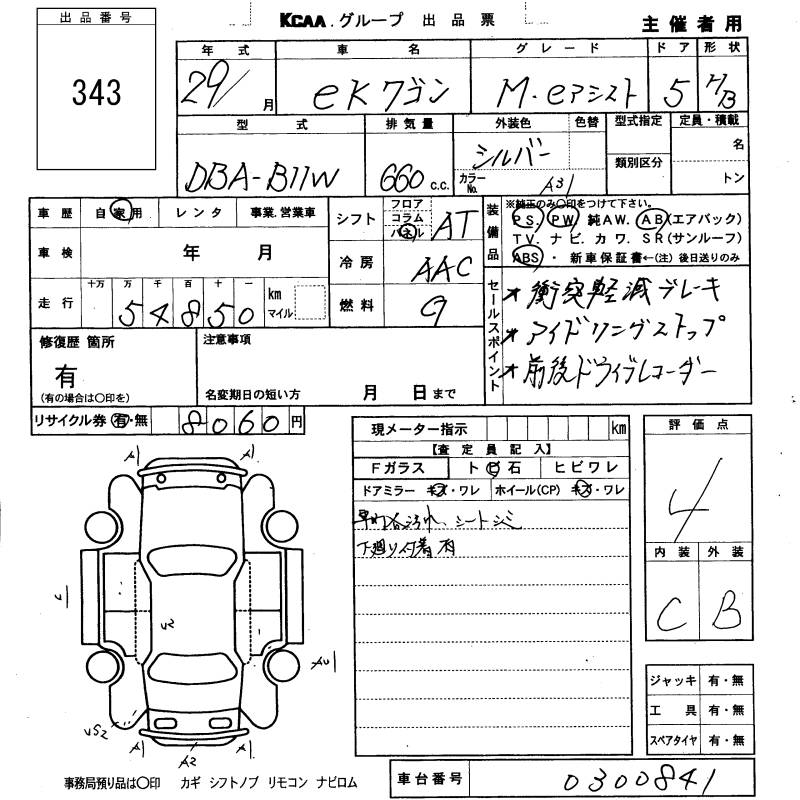 出品番号
343
KCAA.グループ 出品票
主催者用
年式 車名 グレード ドア 形状
29/ 月 eKワゴン M.eアシスト 5 H/B
型式 排気量 外装色 色替 型式指定 定員・積載
DBA-B11W 660 c.c. シルバー 名
カラーNo. A31 類別区分 トン
車歴 自家用 レンタ 事業.営業車
シフト フロア コラム パネル AT
装備品 ※純正のみ〇印をつけて下さい。
PS. PW. 純AW. AB(エアバック)
TV. ナビ. カワ. SR(サンルーフ)
ABS・新車保証書←(注)後日送りのみ
車検 年 月
冷房 AAC
走行 十万 万 千 百 十 一
54850 km マイル
燃料 g
セールスポイント
★衝突軽減ブレーキ
★アイドリングストップ
★前後ドライブレコーダー
修復歴 箇所
有
(有の場合は〇印を)
注意事項
名変期日の短い方 月 日まで
リサイクル券 有・無 8060 円
現メーター指示 km
【査定員記入】
Fガラス トビ石 ヒビワレ
ドアミラー キズ・ワレ ホイール(CP) キズ・ワレ
内各汚れ、シートシミ
下廻り付着有
評価点
4
内装 外装
C B
A1 A1
A1 A1
U2
US2
A1 A2 A1
ジャッキ 有・無
工具 有・無
スペアタイヤ 有・無
事務局預り品は〇印 カギ シフトノブ リモコン ナビロム
車台番号 0300841